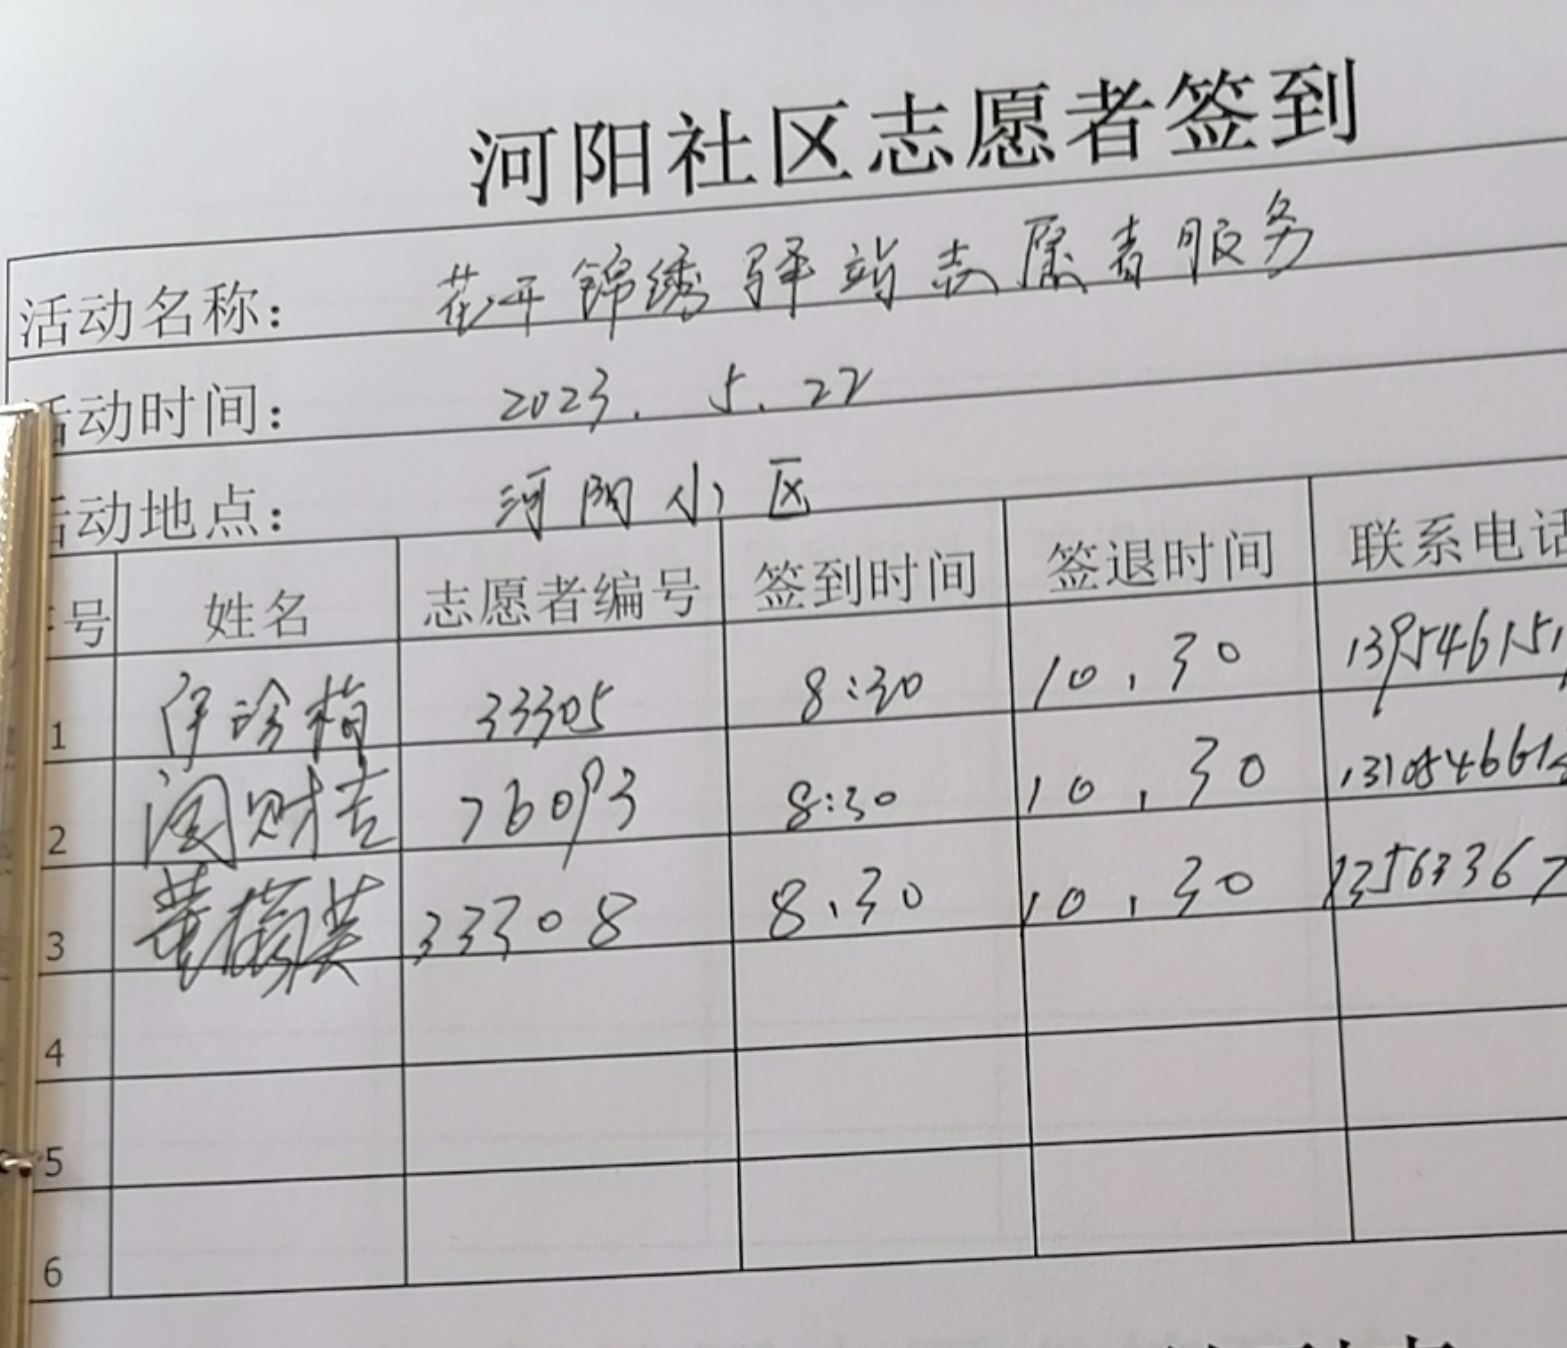 河阳社区志愿者签到
活动名称： 花开锦绣驿站志愿者服务
活动时间： 2023. 5. 22
活动地点： 河阳小区
号 姓名 志愿者编号 签到时间 签退时间 联系电话
1 伊珍梅 33305 8:30 10.30 139546151
2 财吉 76093 8:30 10.30 131054661
3 董英 33308 8.30 10.30 13563367
4
5
6